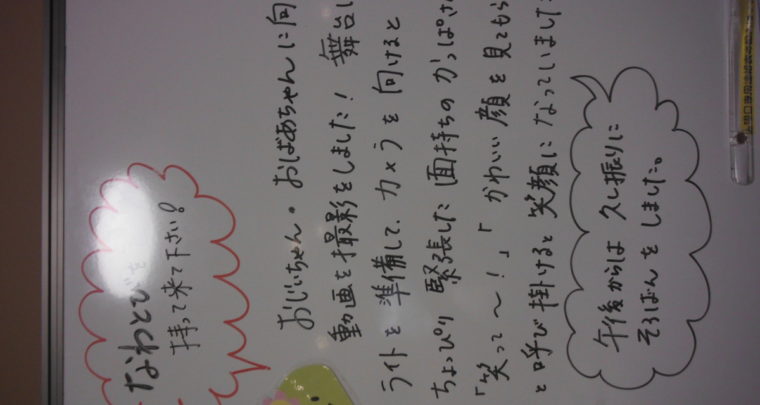 なわとびを
持って来て下さい!
おじいちゃん・おばあちゃんに向
動画を撮影をしました! 舞台
ライトを準備して、カメラを向けると
ちょっぴり緊張した面持ちのかっぱさ
「笑って〜!」「かわいい顔を見てもら
と呼び掛けると笑顔になっていました
午後からは久し振りに
そろばんをしました。